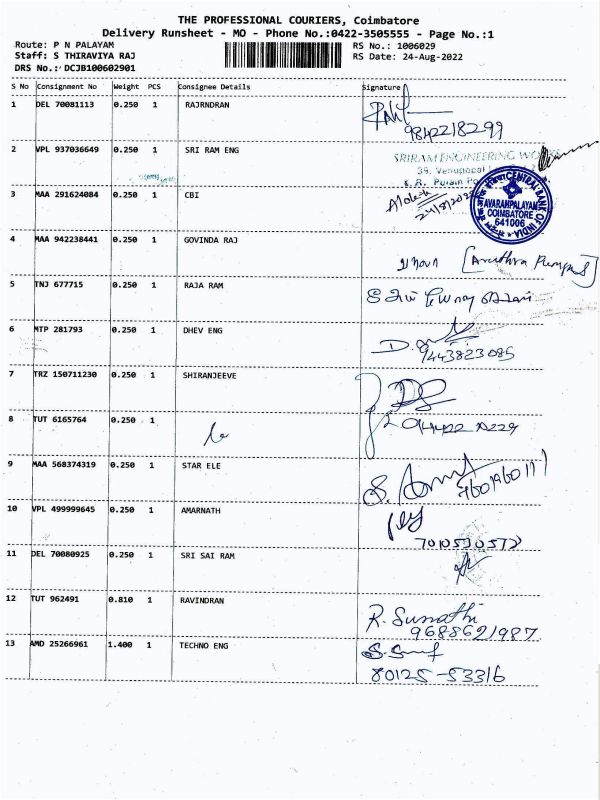 THE PROFESSIONAL COURIERS, Coimbatore
Delivery Runsheet - MO - Phone No.:0422-3505555 - Page No.:1
Route: P N PALAYAM
Staff: S THIRAVIYA RAJ
DRS No.: DCJB100602901
RS No.: 1006029
RS Date: 24-Aug-2022
S No Consignment No Weight PCS Consignee Details Signature
1 DEL 70081113 0.250 1 RAJRNDRAN
9842218299
2 VPL 937036649 0.250 1 SRI RAM ENG
SRIRAM ENGINEERING
39, Venugopal
3 MAA 291624084 0.250 1 CBI
24/8/2022
CENTRAL BANK OF INDIA
AVARAMPALAYAM
COIMBATORE
641006
4 MAA 942238441 0.250 1 GOVINDA RAJ
[Arudhra Pumps]
5 TNJ 677715 0.250 1 RAJA RAM
6 MTP 281793 0.250 1 DHEV ENG
9443823085
7 TRZ 150711230 0.250 1 SHIRANJEEVE
8 TUT 6165764 0.250 1
9 MAA 568374319 0.250 1 STAR ELE
10 VPL 499999645 0.250 1 AMARNATH
11 DEL 70080925 0.250 1 SRI SAI RAM
12 TUT 962491 0.810 1 RAVINDRAN
R. Sumathi
9688621987
13 AMD 25266961 1.400 1 TECHNO ENG
80125-53316